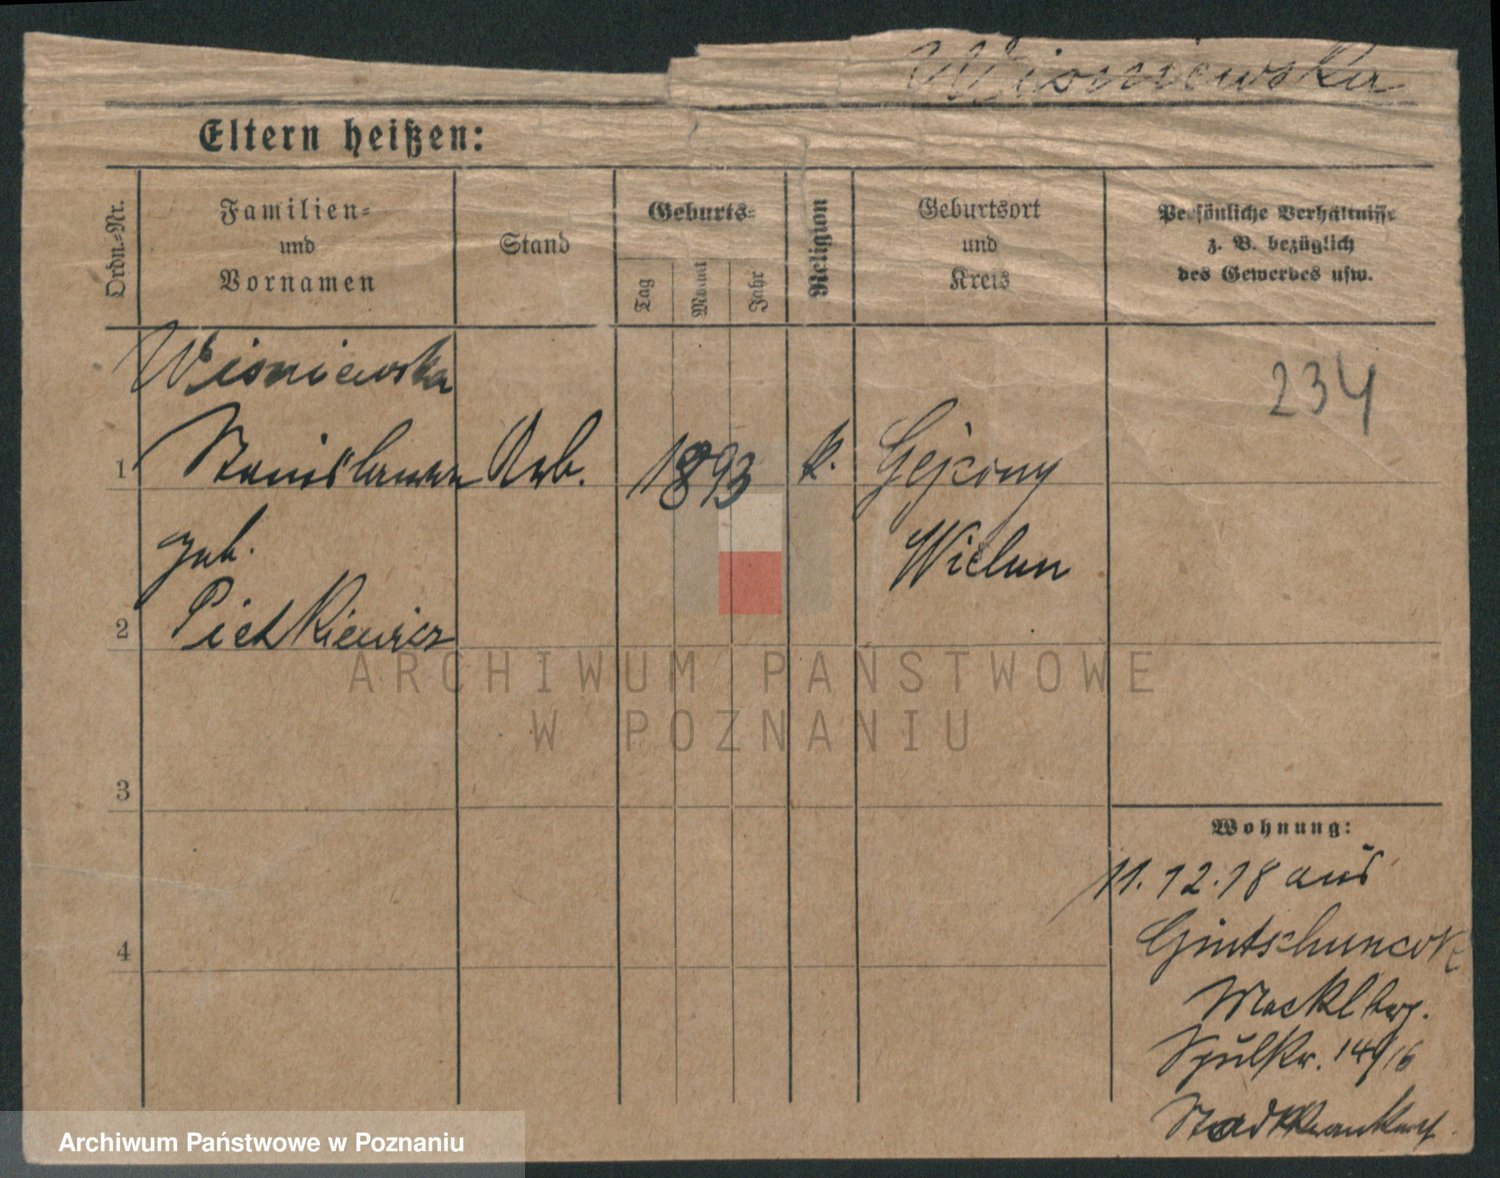 Wisniewska
Eltern heißen:
Ordn.-Nr.
Familien-
und
Vornamen
Stand
Geburts-
Tag
Monat
Jahr
Religion
Geburtsort
und
Kreis
Persönliche Verhältnisse
z. B. bezüglich
des Gewerbes usw.
Wisniewska
234
1 Stanislawa Arb. 1893 k.
geb. Wielun
2 Pietkiewicz
ARCHIWUM PAŃSTWOWE
W POZNANIU
3
Wohnung:
11.12.18 aus
4
Mecklbg.
14/16
Archiwum Państwowe w Poznaniu